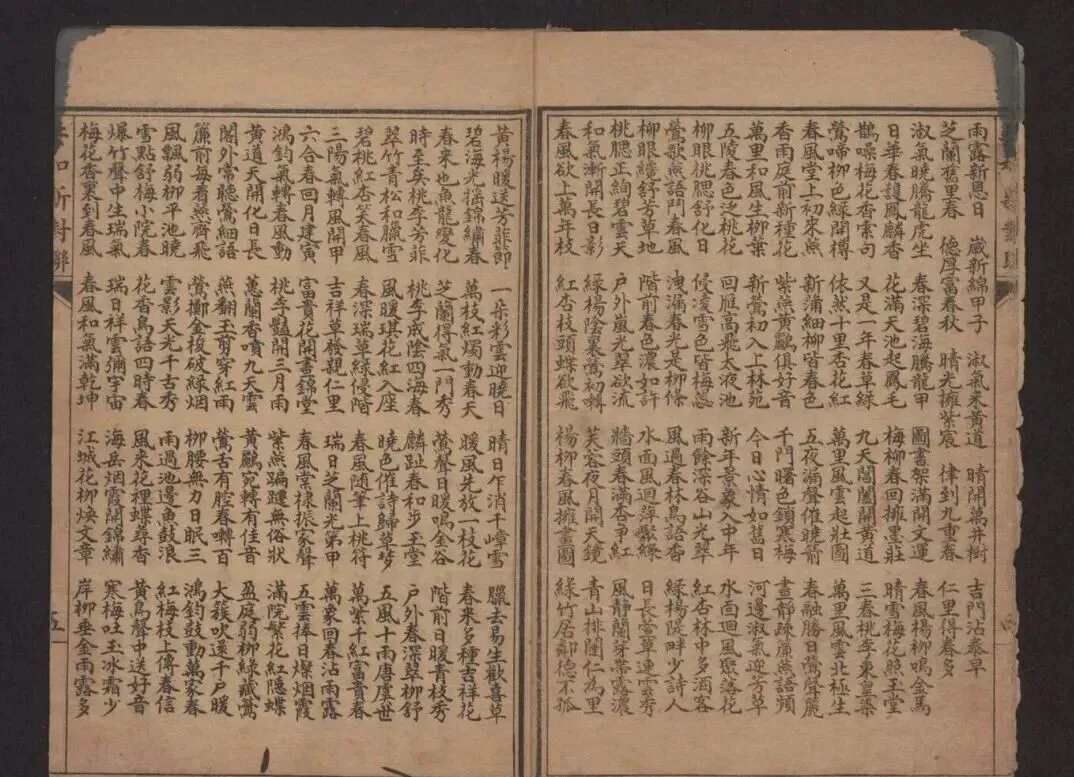 雨露新恩日 歲新綿甲子 淑氣來黃道 晴開萬井樹 吉門沾泰早
芝蘭舊里春 德厚富春秋 晴光擁紫宸 律到九重春 仁里得春多
淑氣曉騰龍虎坐 春深碧海騰龍甲 圖書架滿開文運 春風楊柳鳴金馬
日華春護鳳麟香 花滿天池起鳳毛 梅柳春回擁墨莊 晴雪梅花照玉堂
鵲噪梅花香索句 又是一年春草綠 九天閶闔開黃道 三春桃李東皇染
鶯啼柳色綠開樽 依然十里杏花紅 萬里風雲起壯圖 萬里風雲北極生
春風堂上初來燕 新蒲細柳皆春色 五夜漏聲催曉箭 春融勝日鶯聲麗
香雨庭前新種花 紫燕黃鸝俱好音 千門曙色鎖寒梅 晝靜疎簾燕語頻
萬里和風生柳葉 新鶯初入上林苑 今日心情如舊日 河邊淑氣迎芳草
五陵春色泛桃花 回雁高飛太液池 新年景象入中年 水面迴風聚落花
柳眼桃腮舒化日 侵凌雪色皆梅蕊 雨餘深谷山光翠 紅杏林中多酒客
鶯歌燕語鬥春風 洩漏春光是柳條 風過春林鳥語香 綠楊隄畔少詩人
柳眼纔舒芳草地 階前春色濃如許 水面風迴萍聚綠 日長萱草連雲秀
桃腮正絢碧雲天 戶外嵐光翠欲流 牆頭春滿杏爭紅 風靜蘭芽帶露濃
和氣漸開長日影 綠楊陰裏鶯初囀 芙蓉夜月開天鏡 青山排闥仁為里
春風欲上萬年枝 紅杏枝頭蝶欲飛 楊柳春風擁畫圖 綠竹居鄰德不孤
黃楊暖送芳菲節 一朵彩雲迎曉日 晴日乍消千嶂雪 臘去易生歡喜草
碧海光搖錦繡春 萬枝紅燭動春天 暖風先放一枝花 春來多種吉祥花
春來也魚龍變化 芝蘭得氣一門秀 鶯聲日暖鳴金谷 階前日暖青枝秀
時至矣桃李芳菲 桃李成陰四海春 麟趾春和步玉堂 戶外春深翠柳舒
翠竹青松和臘雪 風暖琪花紅入座 曉色催詩歸草夢 五風十雨唐虞世
碧桃紅杏笑春風 春深瑞草綠侵階 春風隨筆上桃符 萬紫千紅富貴春
三陽氣轉風開甲 吉祥草發親仁里 瑞日芝蘭光第甲 萬象回春沾雨露
六合春回月建寅 富貴花開書錦堂 春風棠棣振家聲 五雲捧日燦烟霞
鴻鈞氣轉春風動 桃李豔開三月雨 紫燕蹁躚無俗狀 滿院繁花紅隱蝶
黃道天開化日長 蕙蘭香噴九天雲 黃鸝宛轉有佳音 盈庭弱柳綠藏鶯
閣外常聽鶯細語 燕翻玉剪穿紅雨 鶯舌有腔春囀百 大簇吹還千戶暖
簾前每看燕齊飛 鶯擲金梭破綠烟 柳腰無力日眠三 鴻鈞鼓動萬家春
風飄弱柳平池曉 雲影天光千古秀 雨過池邊魚鼓浪 紅梅枝上傳春信
雪點舒梅小院春 花香鳥語四時春 風來花裡蝶尋香 黃鳥聲中送好音
爆竹聲中生瑞氣 瑞日祥雲彌宇宙 海岳烟霞開錦繡 寒梅吐玉冰霜少
梅花香裏到春風 春風和氣滿乾坤 江城花柳煥文章 岸柳垂金雨露多
共和新對聯
五